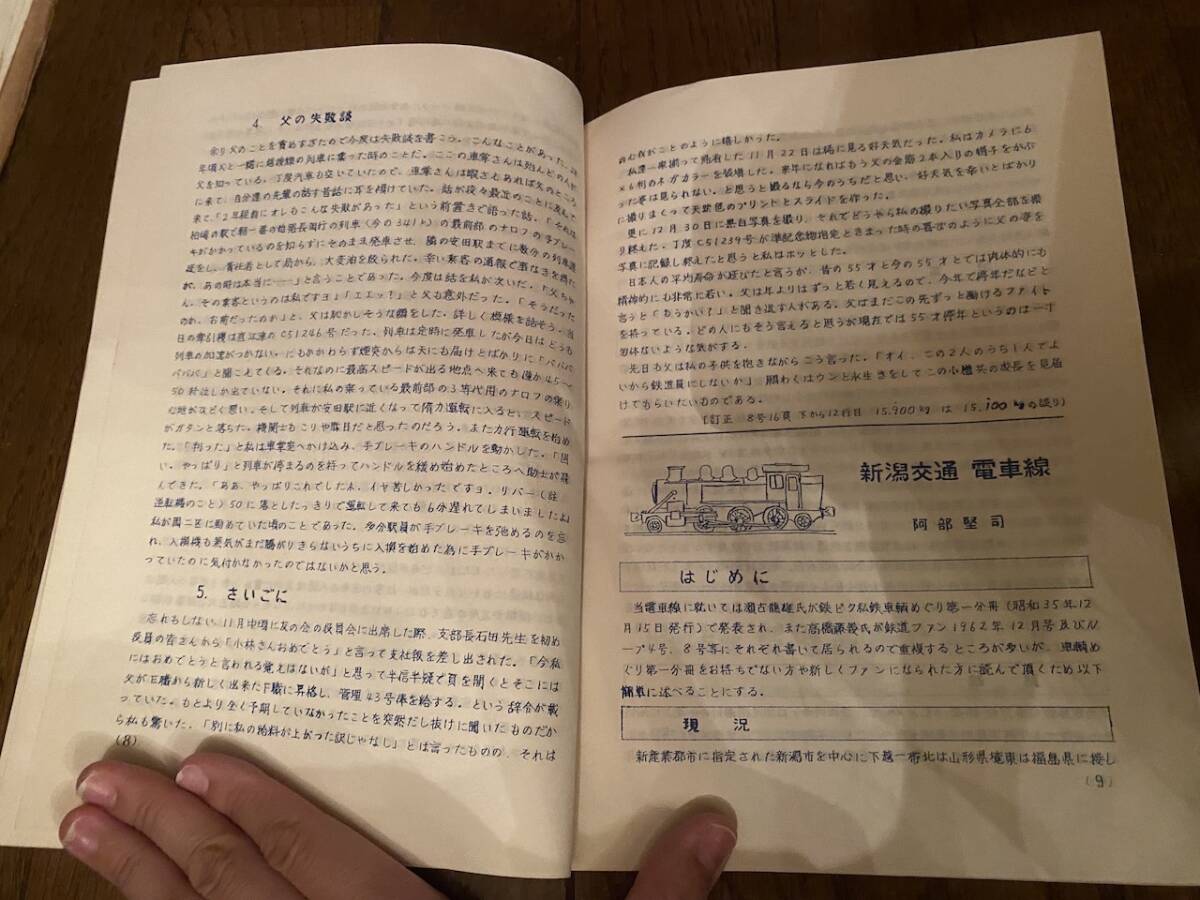 4. 父の失敗談
余り父のことを責めすぎたので今度は失敗談を書こう。こんなことがあった。
年頃父と一緒に越後線の列車に乗った時のことだ。ここの車掌さんは殆んどの人が
父を知っている。丁度汽車も空いていたので、車掌さんは暇さむあれば父のところ
に来て、自分達の先輩の話す昔話に耳を傾けていた。話が段々最近のことに及んで
来て、「2年程前にオレもこんな失敗があった」という前置きで語った話。「それは
柏崎の駅で朝一番の始発長岡行の列車(今の341レ)の最前部のナロフの手ブレー
キがかかっているのを知らずにそのまま発車させ、隣の安田駅までに数分の列車遅
延をし、責任者として局から、大変油を絞られた。幸い乗客の通報で事なきを得た
が、あの時は本当に――」と言うことであった。今度は話を私が次いだ。「父ちゃ
ん、その乗客というのは私ですヨ」「エエッ?」と父も意外だった。「そうだった
のか、お前だったのか」と、父は恥かしそうな顔をした。詳しく模様を話そう。当
日の牽引機は直江津のC51246号だった。列車は定時に発車したが今日はどうも
列車の加速がつかない。にもかかわらず煙突からは天にも届けとばかりに「バババ
ババババ」と聞こえてくる。それなのに最高スピードが出る地点へ来ても僅か45~
50粁位しか出ていない。それに私の乗っている最前部の3等代用のナロフの乗り
心地がひどく悪い。そして列車が安田駅に近くなって惰力運転に入ると、スピード
がガタンと落ちた。機関士もこりゃ駄目だと思ったのだろう。また力行運転を始め
た。「判った」と私は車掌室へかけ込み、手ブレーキのハンドルを動かした。「固
い、やっぱり」と列車が停まるのを待ってハンドルを緩め始めたところへ助士が飛
んできた。「ああ、やっぱりこれでしたネ、イヤ苦しかったですヨ。リバー(註
逆転機のこと)50に落としたっきりで運転して来ても6分遅れてしまいましたよ」
私が周二区に勤めていた頃のことであった。多分駅員が手ブレーキを弛めるのを忘
れ、入換機も蒸気がまだ騰がりきらないうちに入換を始めた為に手ブレーキがかか
っていたのに気付かなかったのではないかと思う。
5. さいごに
忘れもしない11月中頃に友の会の役員会に出席した際、支部長石田先生を初め
役員の皆さんから「小林さんおめでとう」と言って支社報を差し出された。「今私
にはおめでとうと言われる覚えはないが」と思って半信半疑で頁を開くとそこには
父がE職から新しく出来たF職に昇格し、管理43号俸を給する。という辞令が載
っていた。もとより全く予期していなかったことを突然だし抜けに聞いたものだか
ら私も驚いた。「別に私の給料が上がった訳じゃなし」とは言ったものの、それは
(8)
我がことのように嬉しかった。
発した11月22日は稀に見る好天気だった。私はカメラに6
×6判のネガカラーを装填した。来年になればもう父の金筋2本入りの帽子をかぶ
った姿は見られない。と思うと撮るなら今のうちだと思い、好天気を幸いとばかり
に撮りまくって天然色のプリントとスライドを作った。
更に12月30日に黒白写真を撮り、それでどうやら私の撮りたい写真全部を撮
り終えた。丁度C51239号が準記念物指定ときまった時の喜びのように父の姿を
写真に記録し終えたと思うと私はホッとした。
日本人の平均寿命が延びたと言うが、昔の55才と今の55才とでは肉体的にも
精神的にも非常に若い。父は年よりはずっと若く見えるので、今年で停年だなどと
言うと「もうかい?」と聞き返す人がある。父はまだこの先ずっと働けるファイト
を持っている。どの人にもそう言えると思うが現在では55才停年というのは一寸
勿体ないような気がする。
先日も父は私の子供を抱きながらこう言った。「オイ、この2人のうち1人でよ
いから鉄道員にしないか」願わくはウンと永生きをしてこの小僧共の成長を見届
けてもらいたいものである。
[訂正 8号16頁 下から12行目 15,900kgは 15,100kgの誤り)
新潟交通 電車線
阿部堅司
はじめに
当電車線に就いては瀬古龍雄氏が鉄ピク私鉄車輌めぐり第一分冊(昭和35年12
月15日発行)で発表され、また高橋氏が鉄道ファン1962年12月号及びル
ープ4号、8号等にそれぞれ書いて居られるので重複するところが多いが、車輌め
ぐり第一分冊をお持ちでない方や新しくファンになられた方に読んで頂くため以下
簡単に述べることにする。
現況
新産業都市に指定された新潟市を中心に下越一帯北は山形県境東は福島県に接し
(9)